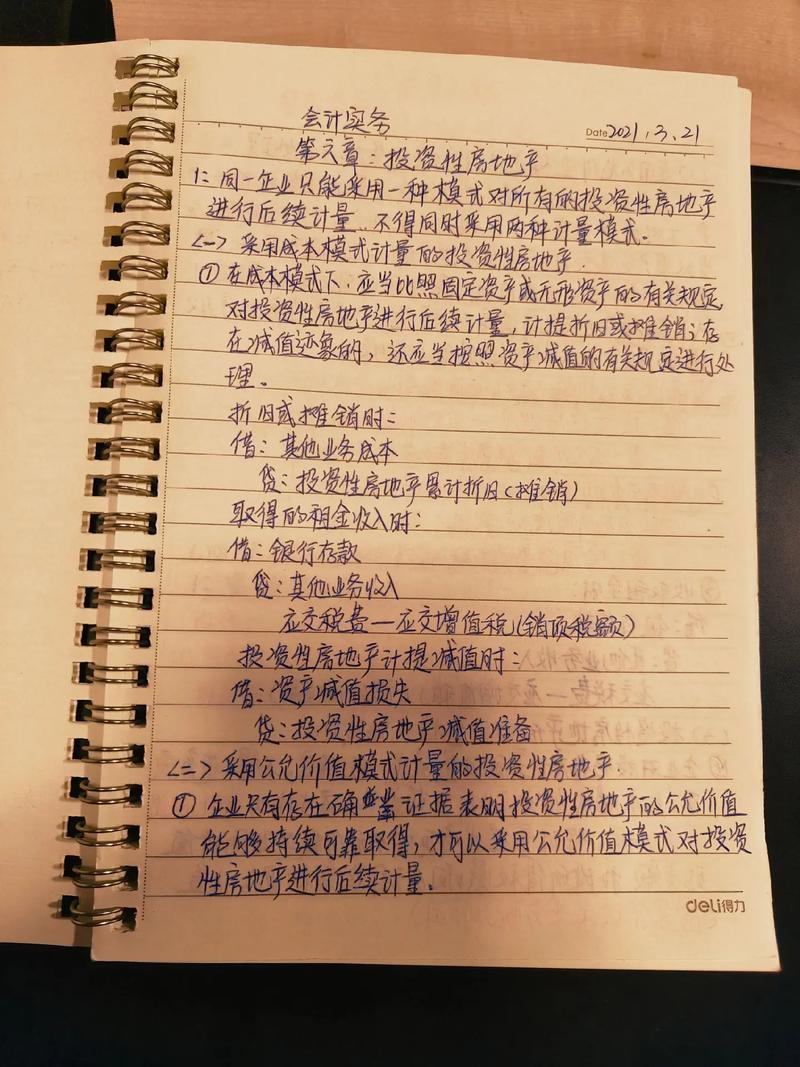 会计实务
Date 2021.3.21
第六章：投资性房地产
1：同一企业只能采用一种模式对所有的投资性房地产
进行后续计量，不得同时采用两种计量模式。
<一> 采用成本模式计量的投资性房地产.
① 在成本模式下，应当比照固定资产或无形资产的有关规定，
对投资性房地产进行后续计量，计提折旧或摊销；存
在减值迹象的，还应当按照资产减值的有关规定进行处
理。
折旧或摊销时：
借：其他业务成本
贷：投资性房地产累计折旧（摊销）
取得的租金收入时：
借：银行存款
贷：其他业务收入
应交税费—应交增值税（销项税额）
投资性房地产计提减值时：
借：资产减值损失
贷：投资性房地产减值准备
<二> 采用公允价值模式计量的投资性房地产.
① 企业只有存在确凿证据表明投资性房地产的公允价值
能够持续可靠取得，才可以采用公允价值模式对投资
性房地产进行后续计量。
deli得力